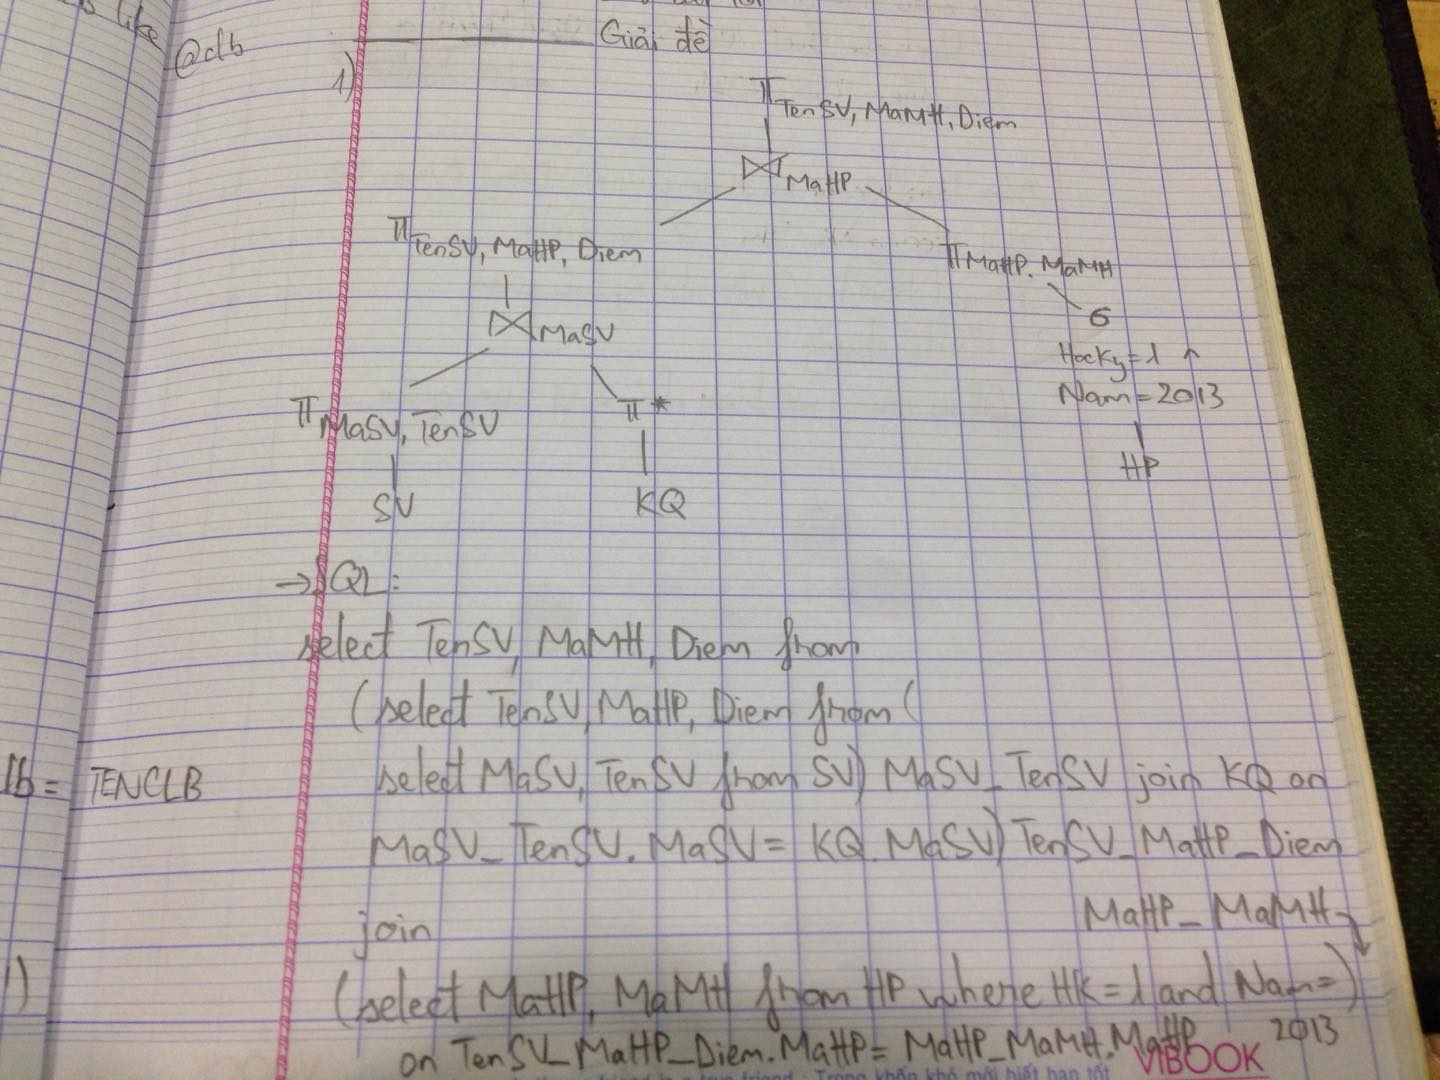 like
@clb
Giải đề
1)
π TenSV, MaMH, Diem
⋈ MaHP
π TenSV, MaHP, Diem
π MaHP, MaMH
⋈ MaSV
σ
Hocky=1 ^
Nam=2013
π MaSV, TenSV
π *
HP
SV
KQ
→ SQL:
select TenSV, MaMH, Diem from
(select TenSV, MaHP, Diem from (
lb = TENCLB
select MaSV, TenSV from SV) MaSV_TenSV join KQ on
MaSV_TenSV.MaSV = KQ.MaSV) TenSV_MaHP_Diem
join
MaHP_MaMH
1)
(select MaHP, MaMH from HP where HK=1 and Nam=)
2013
on TenSV_MaHP_Diem.MaHP = MaHP_MaMH.MaHP
VIBOOK
Trong khốn khó mới biết bạn tốt